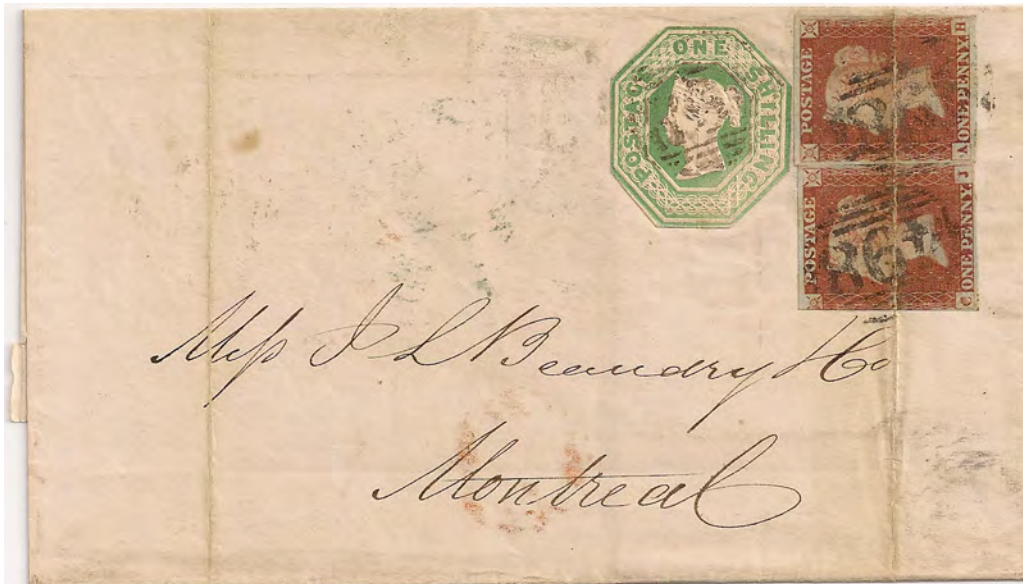 POSTAGE ONE SHILLING
POSTAGE
ONE PENNY
POSTAGE
ONE PENNY
Messrs J L Beaudry & Co
Montreal